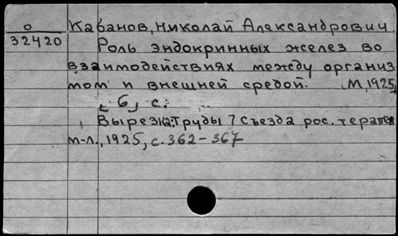 О
32420
Кабанов, Николай Александрович.
Роль эндокринных желез во
взаимодействиях между организ
мом и внешней средой. М, 1925,
6, с.
Вырезка: Труды 7 съезда рос. терапев
м-л., 1925, с. 362-367